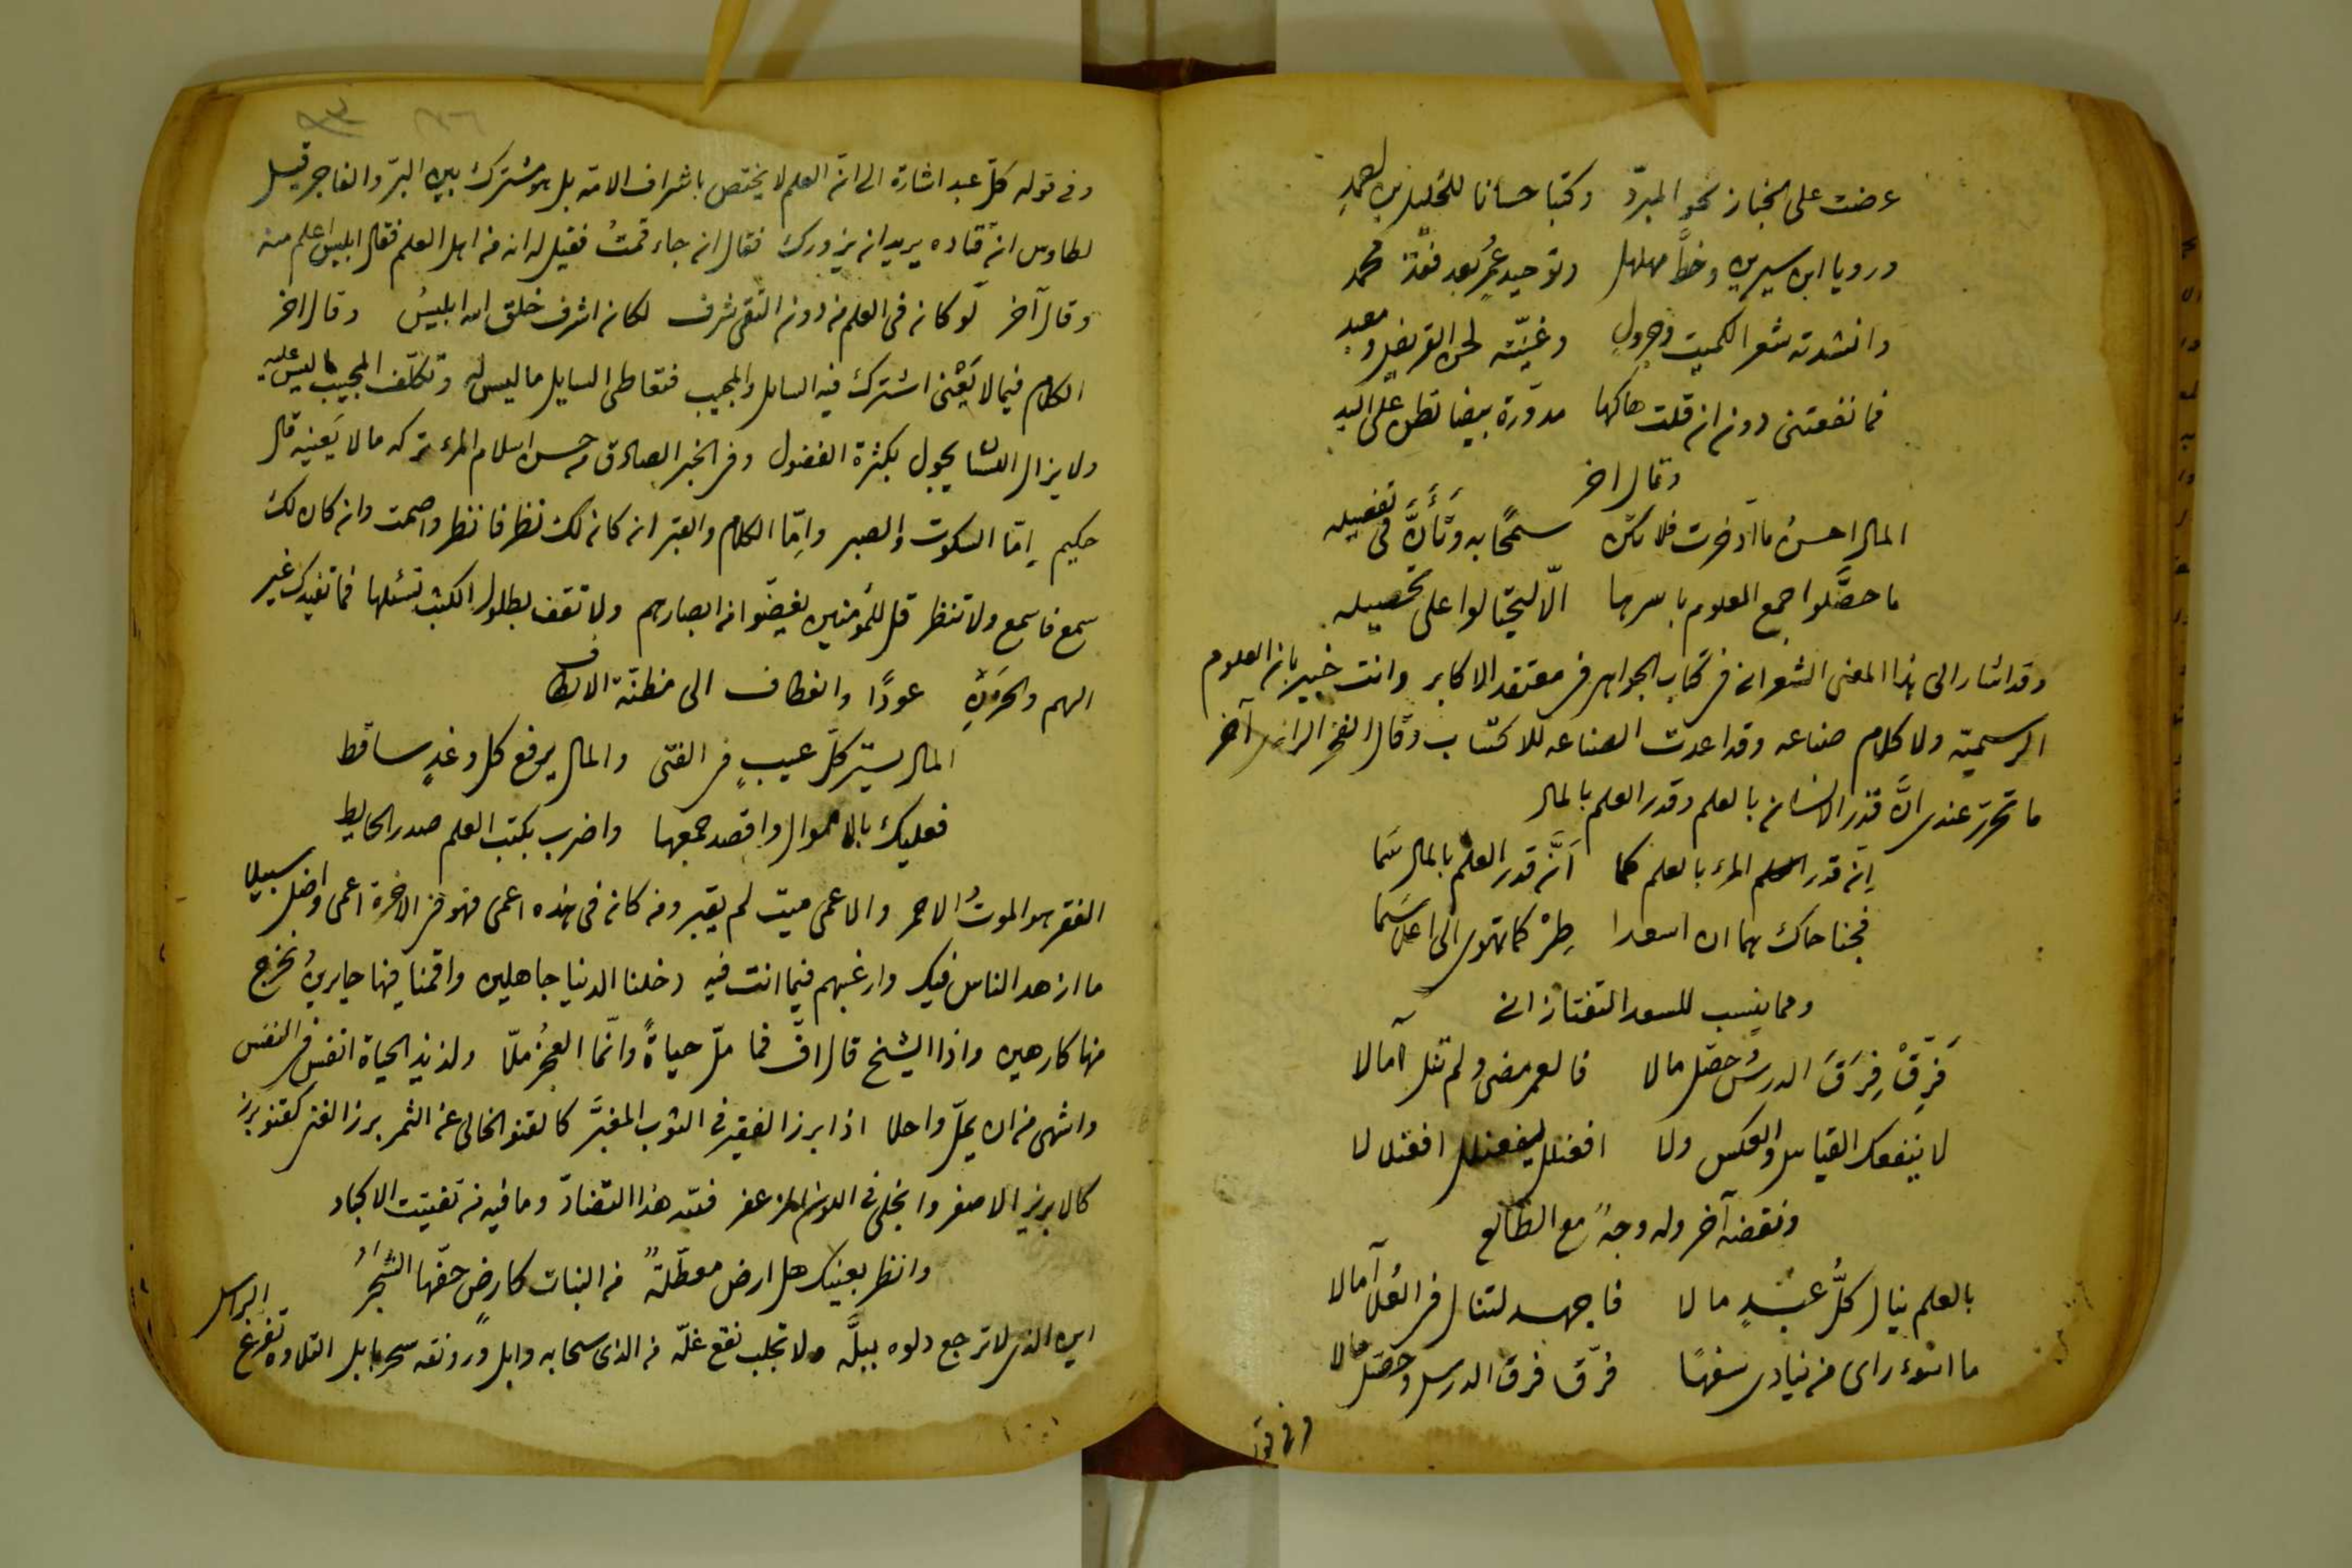 عرضت على الخباز نحو المبرّد وكتبا حسانا للخليل بن احمدِ
ورويا ابن سيرين وخطَّ مهلهل وتوحيد عمرٍ بعد فقد محمد
وانشدته شعر الكميت وجرولٍ وغنيّته لحن الغريض ومعبد
فما نفعتنى دون ان قلت هاكها مدوّرة بيضا تطن على اليد
وقال اخر
المال احسنُ ما ادّخرت فلا تكن سمحًا به وتَأنَّ فى تفضيله
ما حصّلوا جمع العلوم باسرها الّا ليحتالوا على تحصيله
وقد اشار الى هذا المعنى الشعرانى فى كتاب الجواهر فى معتقد الاكابر وانت خبير بان العلوم
الرسميّة ولا كلام صناعه وقد اعدت الصناعه للاكتساب وقال الفخر الرازى آخر
ما تحرّر عندى انَّ قدْر الانسان بالعلم وقدر العلم بالمال
اِنّ قدر المرء بالعلم كما اَنَّ قدر العلم بالمال سَمَا
فجناحاك هما ان اسعدا طِرْ كما تهوى الى اعلى سَمَا
ومما ينسب للسعد التفتازانى
فَرِّقْ فِرَقَ الدرس وحصّل مالا فالعمر مضى ولم تنل آمالا
لا ينفعك القياس والعكس ولا افعنلل يفعنلل افعنلالا
ونقضه آخر وله وجهٌ مع الطالع
بالعلم ينال كلُّ عبْدٍ مالا فاجهد لتنال فى العُلى آمالا
ما اسوء راى من ينادى سفهًا فرّق فرق الدرس وحصّل مالا
وفى قوله
وفى قوله كلّ عبد اشارة الى انّ العلم لا يختص باشراف الامّة بل هو مشترك بين البرّ والفاجر قيل
لطاوس انّ قتاده يريد ان يزورك فقال ان جاء قمتُ فقيل له انه من اهل العلم فقال ابليس اعلم منه
وقال آخر لو كان فى العلم من دون التقى شرف لكان اشرف خلق الله ابليسُ وقال اخر
الكلام فيما لا يَعْنى اشترك فيه السايل والمجيب فتعاطى السايل ما ليس له وتكلّف المجيب ما ليس عليه
ولا يزال يجول بكثرة الفضول وفى الخبر الصادق من حسن اسلام المرء تركه ما لا يَعنيه قال
حكيم اِمّا السكوت والصبر واِمّا الكلام والقبر ان كان لك نظر فانظر واصمت وان كان لك
سمع فاسمع ولا تنظر قل للمؤمنين يغضّوا من ابصارهم ولا تقف بطلول الكتب تسئلها فما تفيدك غير
الهم والحَزَنِ عودًا وانعطاف الى مظنّة الالطاف
المال يستر كلّ عيبٍ فى الفتى والمال يرفع كل وغدٍ ساقط
فعليك بالاموال واقصد جمعها واضرب بكتب العلم صدر الحايط
الفقر هو الموتُ الاحمر والاعمى ميت لم يقبر ومن كان فى هذه اعمى فهو فى الاخرة اعمى واضل سبيلا
ما ازهد الناس فيك وارغبهم فيما انت فيه دخلنا الدنيا جاهلين واقمنا فيها حايرين ونخرج
منها كارهين واذا الشيخ قال افّ فما ملّ حياةً وانّما العجز ملّا ولذيذ الحياة انفس فى النفس
واشهى من ان يملّ واحلا اذا برز الفقير فى الثوب المغبَّر كالقنو الخالى عن الثمر برز الغنى كقنو برز
كالابريز الاصفر وانجلى فى اللون المزعفر فلله هذا التضادّ وما فيه من تفتيت الاكباد
وانظر بعينيك هل ارض معطّلةٌ من النبات كارضٍ حفّها الشجرُ
اين الذى لا ترجع دلوه ببلَّه ولا تجلب نقع غلّه من الذى سحابه وابل ورونقه سحر بابل التلاوه تفرغ الراس